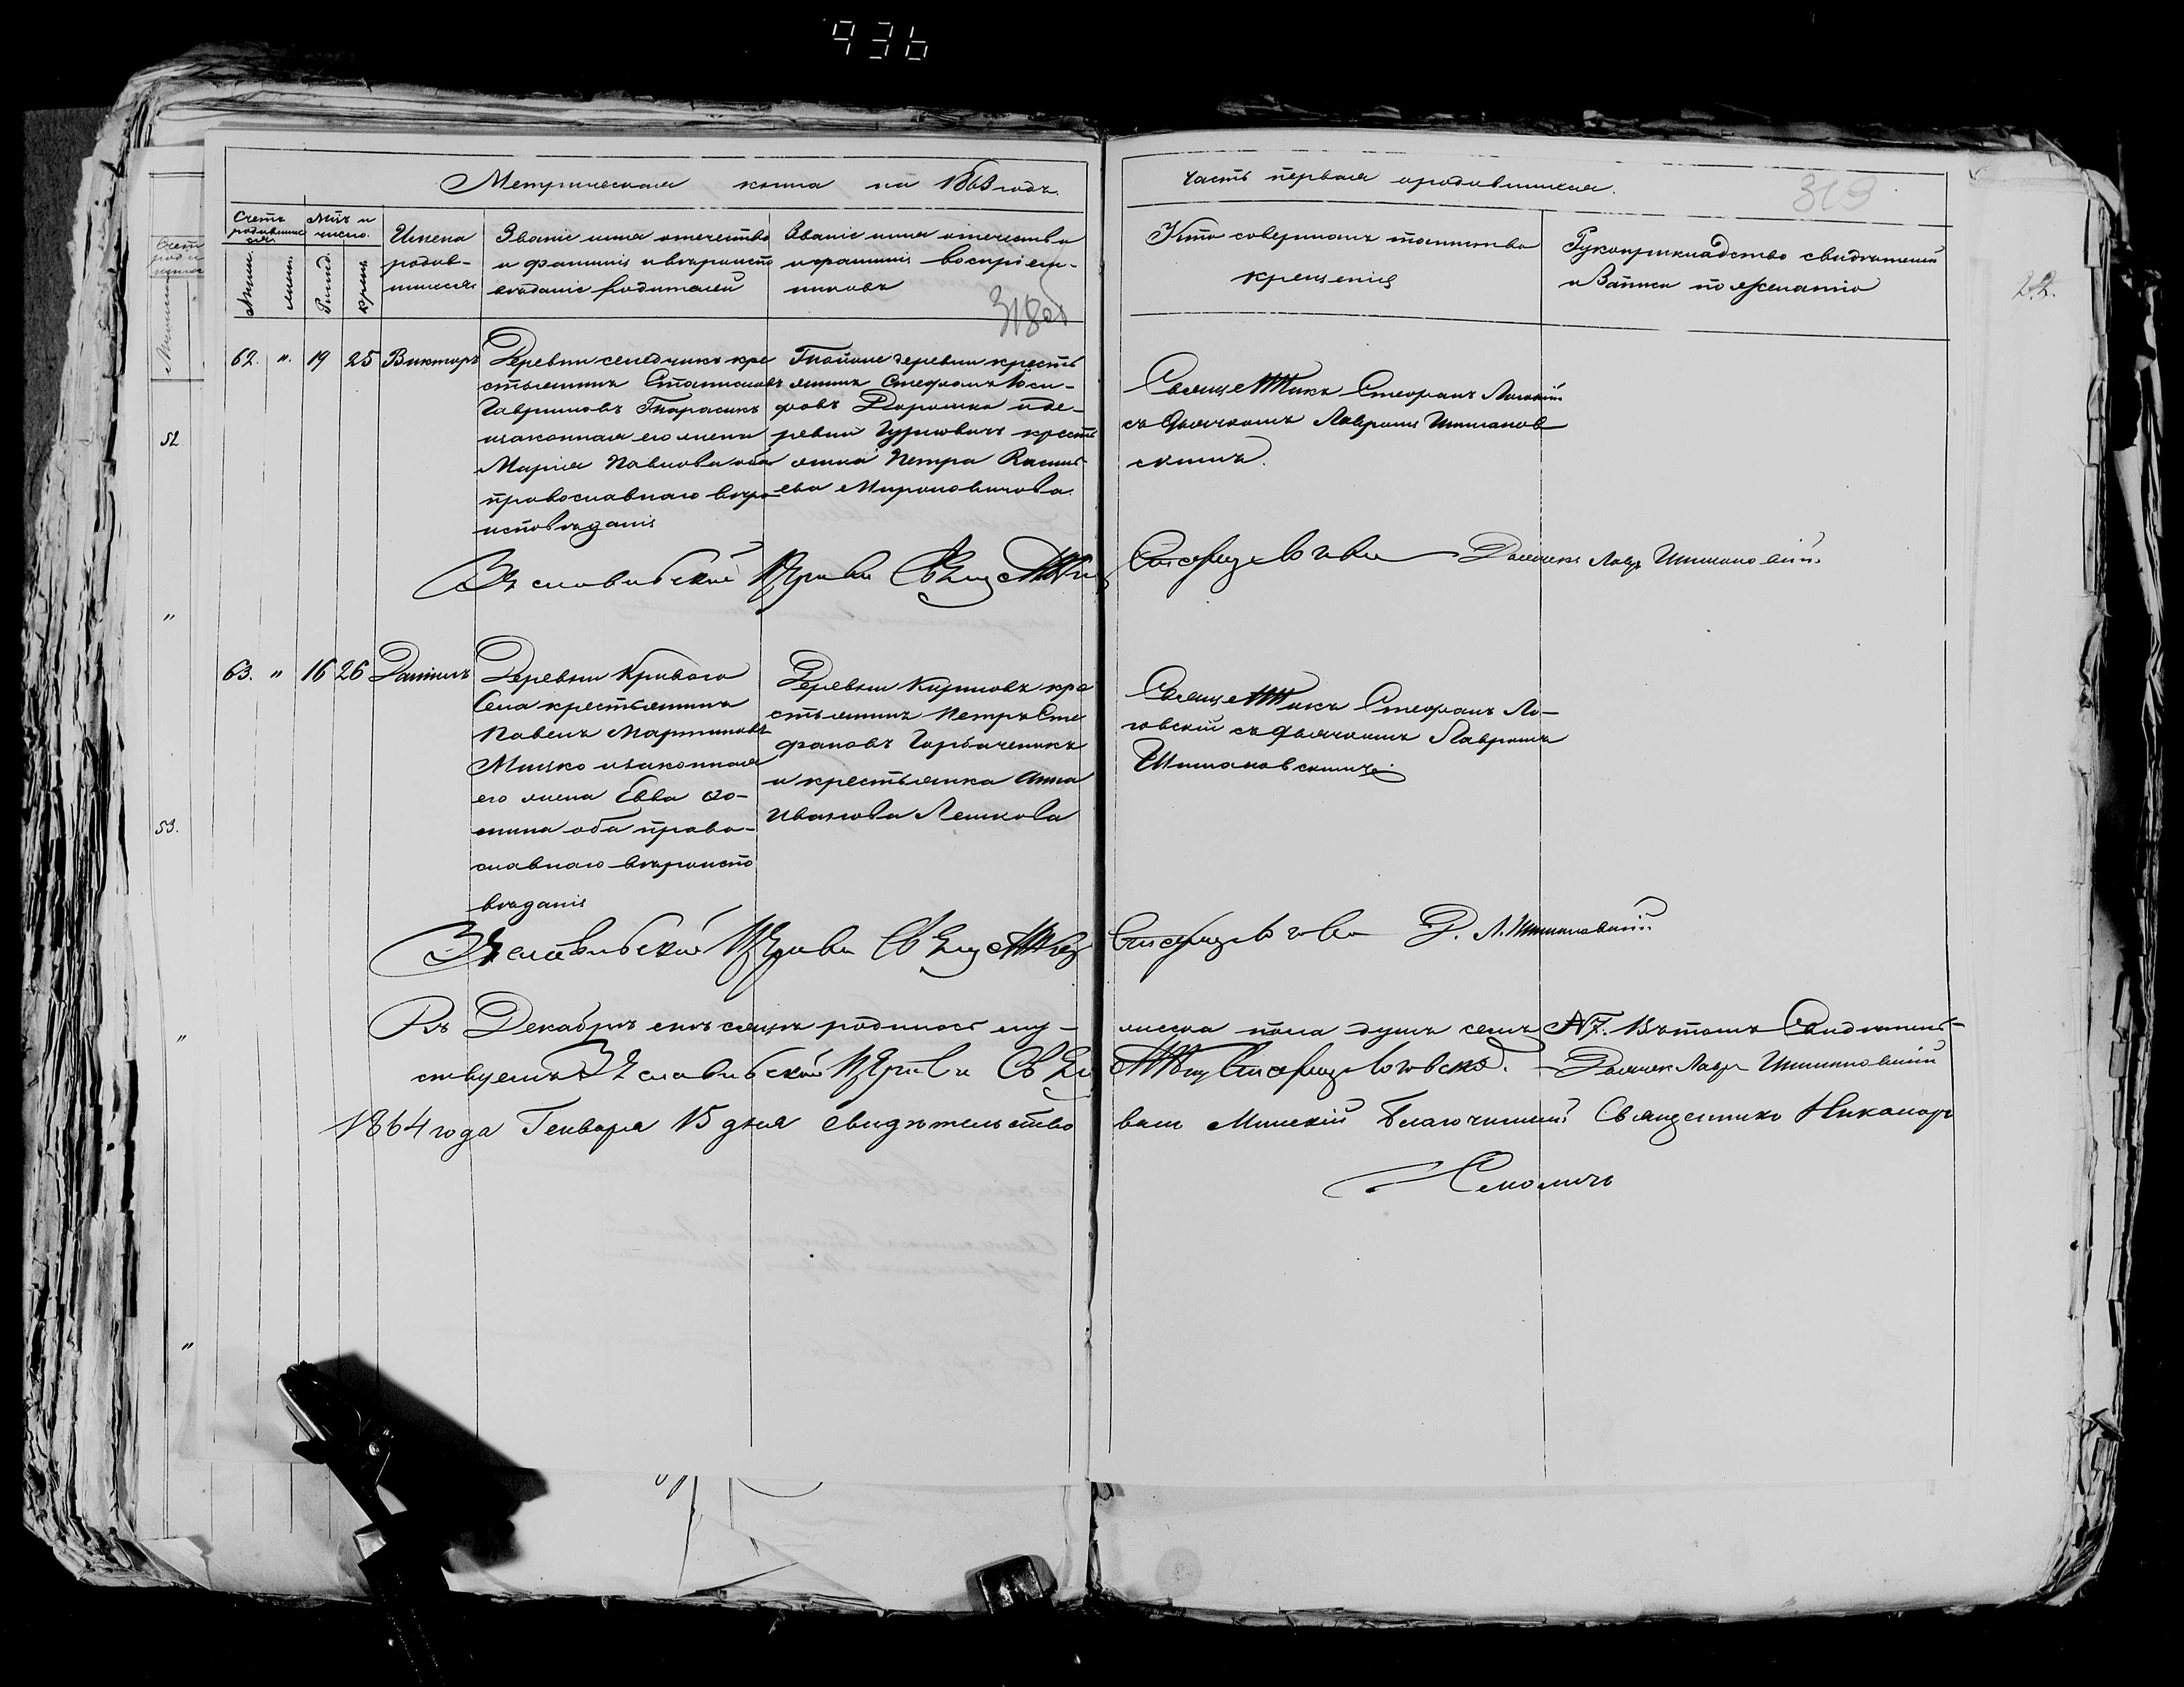 936
Метрическая книга на 1863 годъ.
Часть первая ородившихся.
319
Счетъ родившихся.
Мѣс. и число.
Имена родив-шихся.
Званіе имя отечество и фамилія и вѣроиспо вѣданіе родителей
Званіе имя отечество и фамилія воспріем-никовъ
318об
Кто совершалъ таинство крещенія
Рукоприкладство свидѣтелей и Записи по желанію
22.
Рожд.
Крещ.
62. " 19 25 Викторъ
Деревни Селедчикъ кре
стьянинъ Станиславъ
Гавриловъ Тарасикъ
изаконная его жена
Марія Павлова оба
православнаго вѣро
исповѣданія
Тойже деревни кресть
янинъ Стефанъ Іоси-
фовъ Дорошко и де-
ревни Гуриновичъ кресть
янина Петра
ева Мироновичова.
СвящеННикъ Стефанъ Логовскій
съ дьячкомъ Лавромъ Шиманов
скимъ.
Заславльской Церкви СвящеННик
Стефанъ Логовск Дьячекъ Лавръ Шимановскій.
63. " 16 26 Даніилъ
Деревни Кривого
Села крестьянинъ
Павелъ Мартиновъ
Мицко изаконная
его жена Евва Фо-
мина оба право-
славнаго вѣроиспо
вѣданія
Деревни Кириловъ кре
стьянинъ Петръ Сте
фановъ Горбаченикъ
и крестьянка Анна
Иванова Лешкова
СвящеННикъ Стефанъ Ло-
говскій съ дьячкомъ Лавромъ
Шимановскимъ.
Заславльской Церкви СвящеННик
Стефанъ Логовск Д. Л. Шимановскій
Въ Декабрѣ мѣсяцѣ родилось му-
жеска пола душъ семь N7. Въ томъ Свидѣтель-
ствуемъ Заславльской Церкви Свящ
ННикъ Стефанъ Логовскій. Дьячек Лавръ Шимановскій
1864 года Генваря 15 дня свидѣтельство
валъ Минскій Благочинный Священникъ Никаноръ
Смоличъ
52
"
53.
"
"